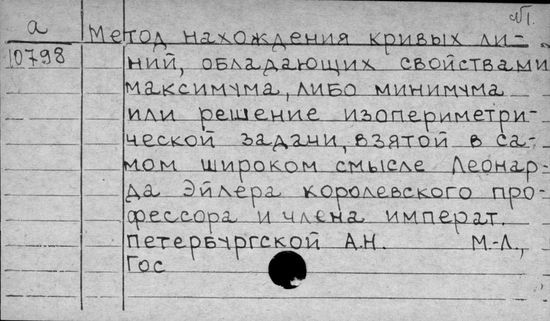 а Метод нахождения кривых ли-
10798 ний, обладающих свойствами
максимума, либо минимума
или решение изопериметри-
ческой задачи, взятой в са-
мом широком смысле Леонар-
да Эйлера королевского про-
фессора и члена императ.
петербургской А.Н. М.-Л.,
Гос